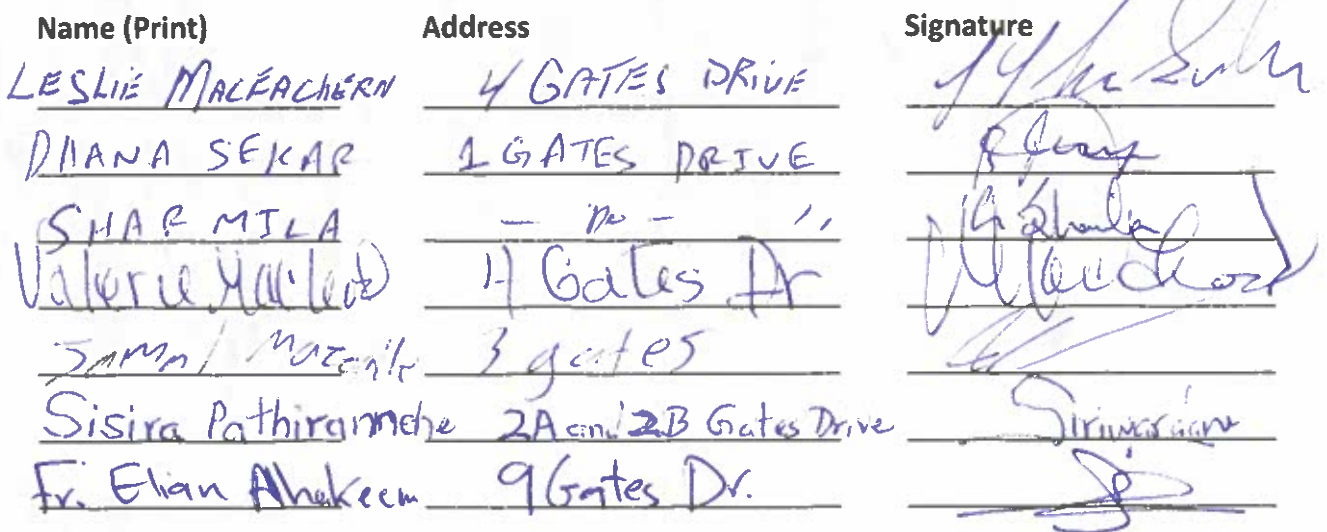 Name (Print) Address Signature
LESLIE MACEACHERN 4 GATES DRIVE
DHANA SEKAR 1 GATES DRIVE
SHARMILA — Do — ,,
Valerie MacLeod 4 Gates Dr
Jamal 3 gates
Sisira 2A and 2B Gates Drive Siriwardana
Fr. Elian Alhakeem 9 Gates Dr.